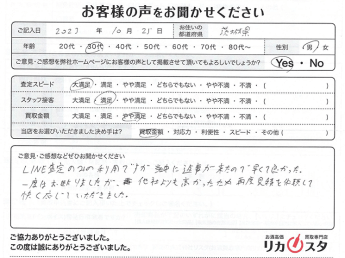 お客様の声をお聞かせください
ご記入日 2023 年 10 月 25 日 お住いの都道府県 茨城県
年齢 20代 ・ 30代 ・ 40代 ・ 50代 ・ 60代 ・ 70代 ・ 80代〜 性別 男 ・ 女
ご意見・ご感想を弊社ホームページにお客様の声として掲載させて頂いてもよろしいでしょうか? Yes ・ No
査定スピード 大満足 ・ 満足 ・ やや満足 ・ どちらでもない ・ やや不満 ・ 不満 ・ ( )
スタッフ接客 大満足 ・ 満足 ・ やや満足 ・ どちらでもない ・ やや不満 ・ 不満 ・ ( )
買取金額 大満足 ・ 満足 ・ やや満足 ・ どちらでもない ・ やや不満 ・ 不満 ・ ( )
当店をお選びいただきました決め手は? 買取金額 ・ 対応力 ・ 利便性 ・ スピード ・ その他 ( )
ご意見・ご感想などぜひお聞かせください
LINE査定のみの利用ですが 返事が来たので早くて良かった。
一度はお断りしましたが、他社よりも高かったため 再度見積を依頼して
快く応じていただきました。
ご協力ありがとうございました。
この度は誠にありがとうございました。
お酒高価買取専門店
リカスタ